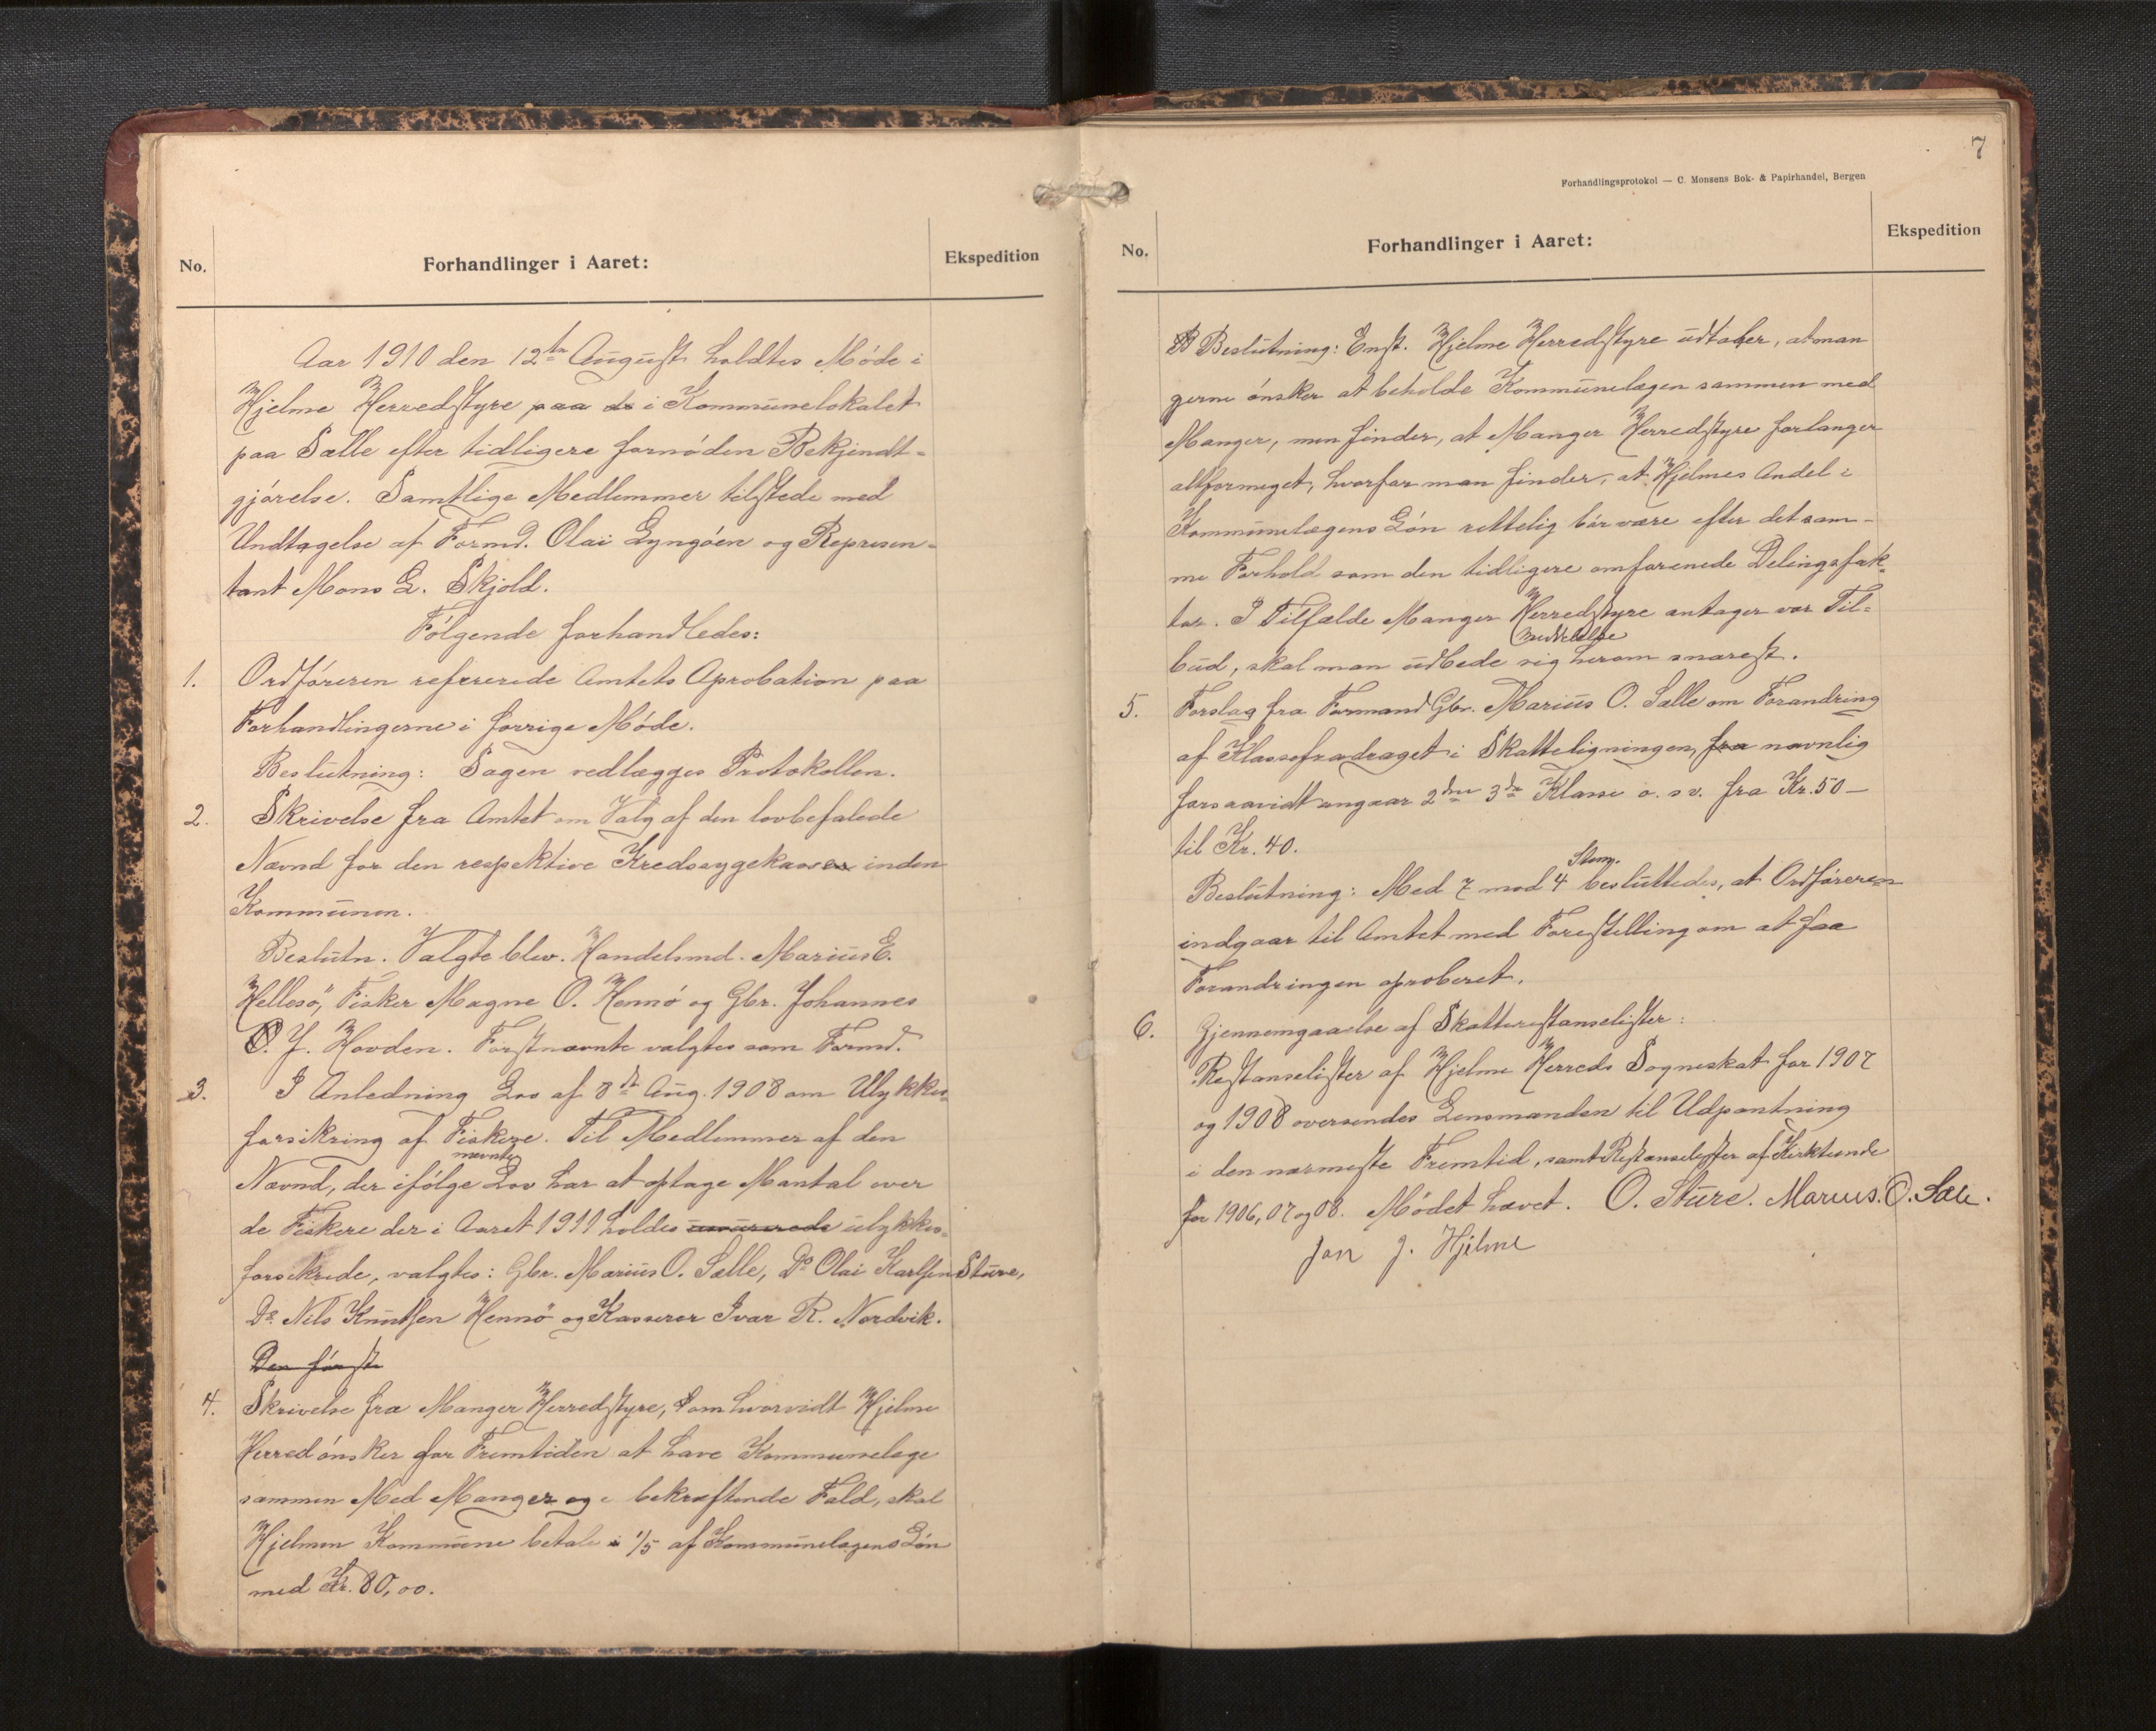 No.
Forhandlinger i Aaret:
Ekspedition
Aar 1910 den 12te August holdtes Møde i
Hjelme Herredstyre paa de i Kommunelokalet
paa Sælle efter tidligere fornøden Bekjendt-
gjørelse. Samtlige Medlemmer tilstede med
Undtagelse af Formd. Olai Lyngøen og Represen-
tant Mons L. Skjold.
Følgende forhandledes:
1. Ordføreren refererede Amtets Aprobation paa
Forhandlingerne i forrige Møde.
Beslutning: Sagen vedlægges Protokollen.
2. Skrivelse fra Amtet om Valg af den lovbefalede
Nævnd for den respektive Kredssygekasser inden
Kommunen.
Beslutn. Valgte blev. Handelsmd. Marius E.
Hellesö, Fisker Magne O. Hennø og Gbr. Johannes
O. J. Hovden. Førstnævnte valgtes som Formd.
3. I Anledning Lov af 8de Aug. 1908 om Ulykkes-
forsikring af Fiskere. Til Medlemmer af den
Nævnd, der ifølge nævnte Lov har at optage Mantal over
de Fiskere der i Aaret 1911 holdes ulykkes-
forsikrede, valgtes: Gbr. Marius O. Sælle, Do Olai Karlsen Sture,
Do. Nils Knutsen Hennö og Kasserer Ivar R. Nordvik.
Den første
4. Skrivelse fra Manger Herredstyre, om hvorvidt Hjelme
Herred ønsker for Fremtiden at have Kommunelæge
sammen Med Manger og i bekræftende Fald, skal
Hjelmen Kommune betale 1/5 af Kommunelægens Løn
med Kr. 80,00.
7
Forhandlingsprotokol — C. Monsens Bok- & Papirhandel, Bergen
No.
Forhandlinger i Aaret:
Ekspedition
Beslutning: Enst. Hjelme Herredstyre udtaler, at man
gerne ønsker at beholde Kommunelægen sammen med
Manger, men finder, at Manger Herredstyre forlanger
altformeget, hvorfor man finder, at Hjelmes Andel i
Kommunelægens Løn rettelig bør være efter det sam-
me Forhold som den tidligere omforenede Delingsfak-
tor. I Tilfælde Manger Herredstyre antager vor Til-
bud, skal man udbede sig Meddelelse herom snarest.
5. Forslag fra Formand Gbr. Marius O. Sælle om Forandring
af Klassefradraget i Skatteligningen, fra navnlig
forsaavidt angaar 2den 3de Klasse o. s v. fra Kr. 50 —
til Kr. 40.
Beslutning: Med 7 mod 4 Stem. besluttedes, at Ordføreren
indgaar til Amtet med Forestilling om at faa
Forandringen aproberet.
6. Gjennemgaaelse af Skatterestanselister:
Restanselister af Hjelme Herreds Sogneskat for 1907
og 1908 oversendes Lensmanden til Udpantning
i den nærmeste Fremtid, samt Restanselister af Kirktiende
for 1906, 07 og 08. Mødet hævet. O. Sture. Marius. O. Sæle.
Jon J. Hjelme